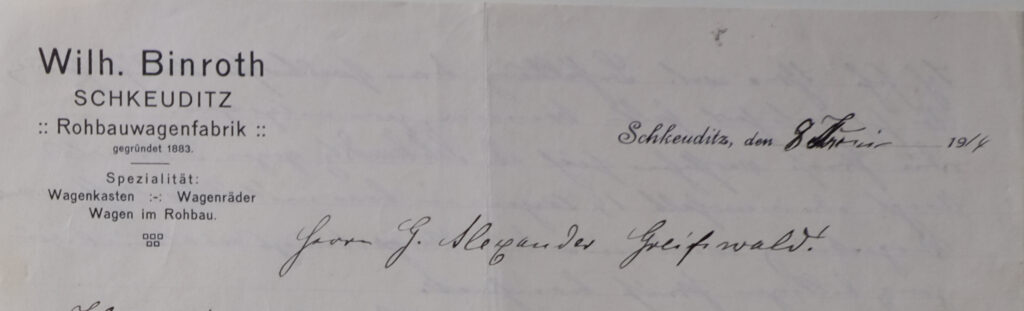 Wilh. Binroth
SCHKEUDITZ
:: Rohbauwagenfabrik ::
gegründet 1883.
Spezialität:
Wagenkasten :-: Wagenräder
Wagen im Rohbau.
Schkeuditz, den 8 Juni 1914
Herrn G. Alexander Greifswald.